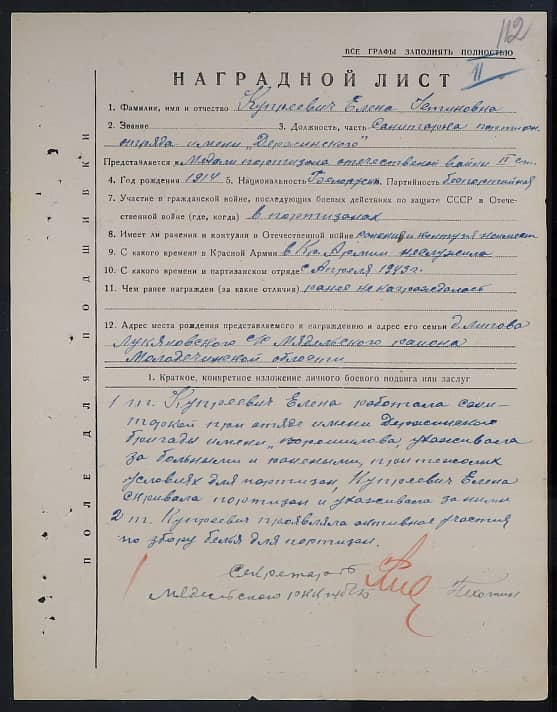 112
ВСЕ ГРАФЫ ЗАПОЛНЯТЬ ПОЛНОСТЬЮ
II
НАГРАДНОЙ ЛИСТ
1. Фамилия, имя и отчество Купреевич Елена Устиновна
2. Звание 3. Должность, часть Санитарка партизан.
отряда имени „Держинского"
Представляется к Медали партизана отечественой войны II ст.
4. Год рождения 1914 5. Национальность Белоруска Партийность безпартийная
7. Участие в гражданской войне, последующих боевых действиях по защите СССР и Отече-
ственной войне (где, когда) в партизанах
8. Имеет ли ранения и контузия в Отечественной войне ранения и контузя неимеет
9. С какого времени в Красной Армии в Кр. Армии неслужила
10. С какого времени в партизанском отряде с Апреля 1943 г.
11. Чем ранее награжден (за какие отличия) ранее ненаграждалась
12. Адрес места рождения представляемого к награждению и адрес его семьи
Лукяновского с/с Мядельского района
Молодечинской области
1. Краткое, конкретное изложение личного боевого подвига или заслуг
1 т. Купреевич Елена работала сани-
таркой при отряде имени Держинского
бригады имени „Ворошилова, ухаживала
за больными и ранеными, при тежолих
условиях для партизан, Купреевич Елена
скривала партизан и ухаживала за ними
2 т. Купреевич проявляла активное участия
по збору белья для партизан.
Секретарь
Мядельского РК КП(б)Б
ПОЛЕ ДЛЯ ПОДШИВКИ